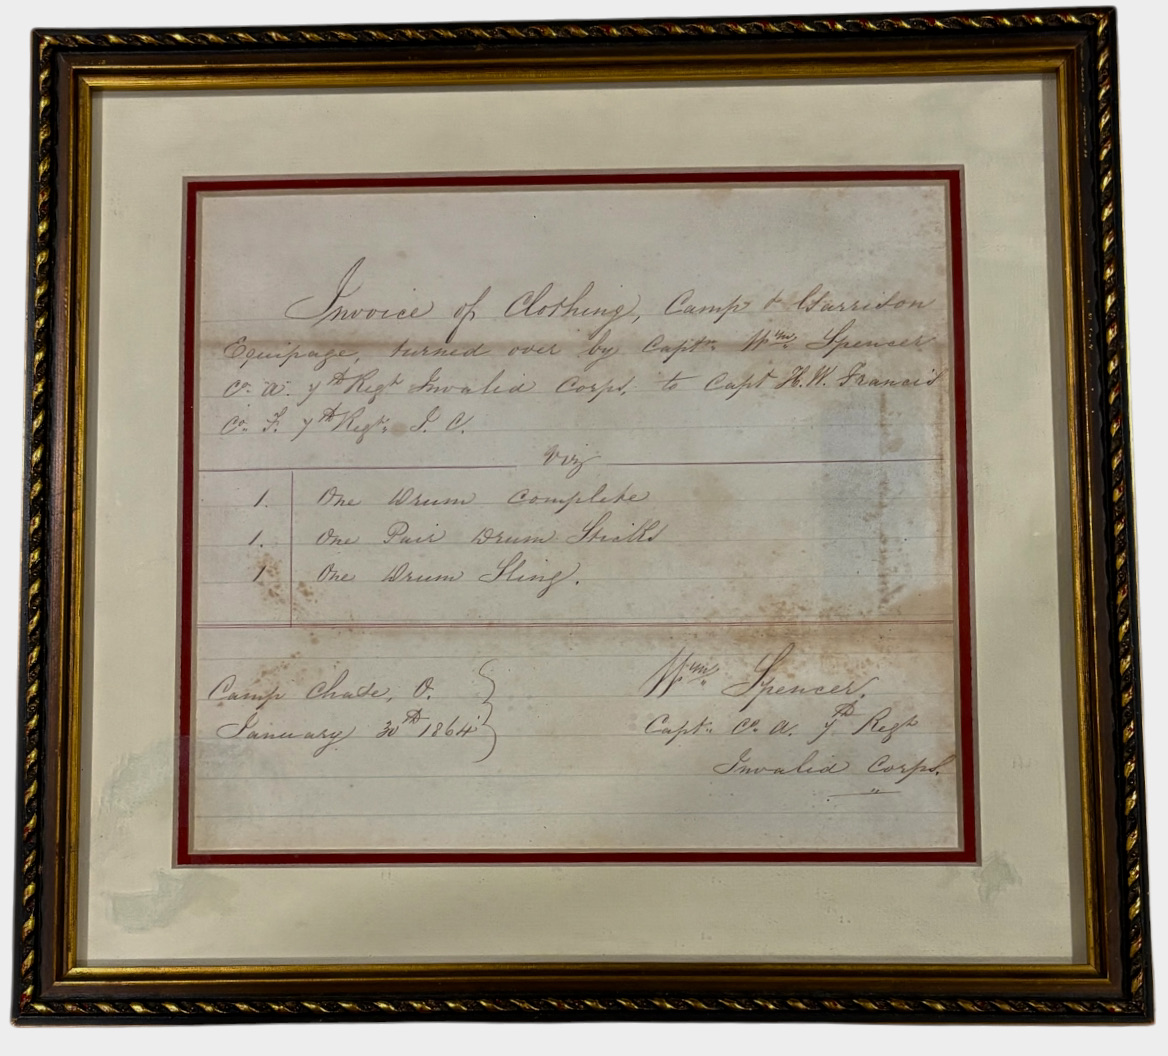 Invoice of Clothing, Camp & Garrison
Equipage, turned over by Captn Wm Spencer
Co. A. 7th Regt Invalid Corps, to Capt H.W. Francis
Co. F. 7th Regt. I. C.
Viz
1. One Drum Complete
1. One Pair Drum Sticks
1 One Drum Sling.
Camp Chase, O.
January 30th 1864
Wm Spencer,
Capt. Co. A. 7th Regt
Invalid Corps.